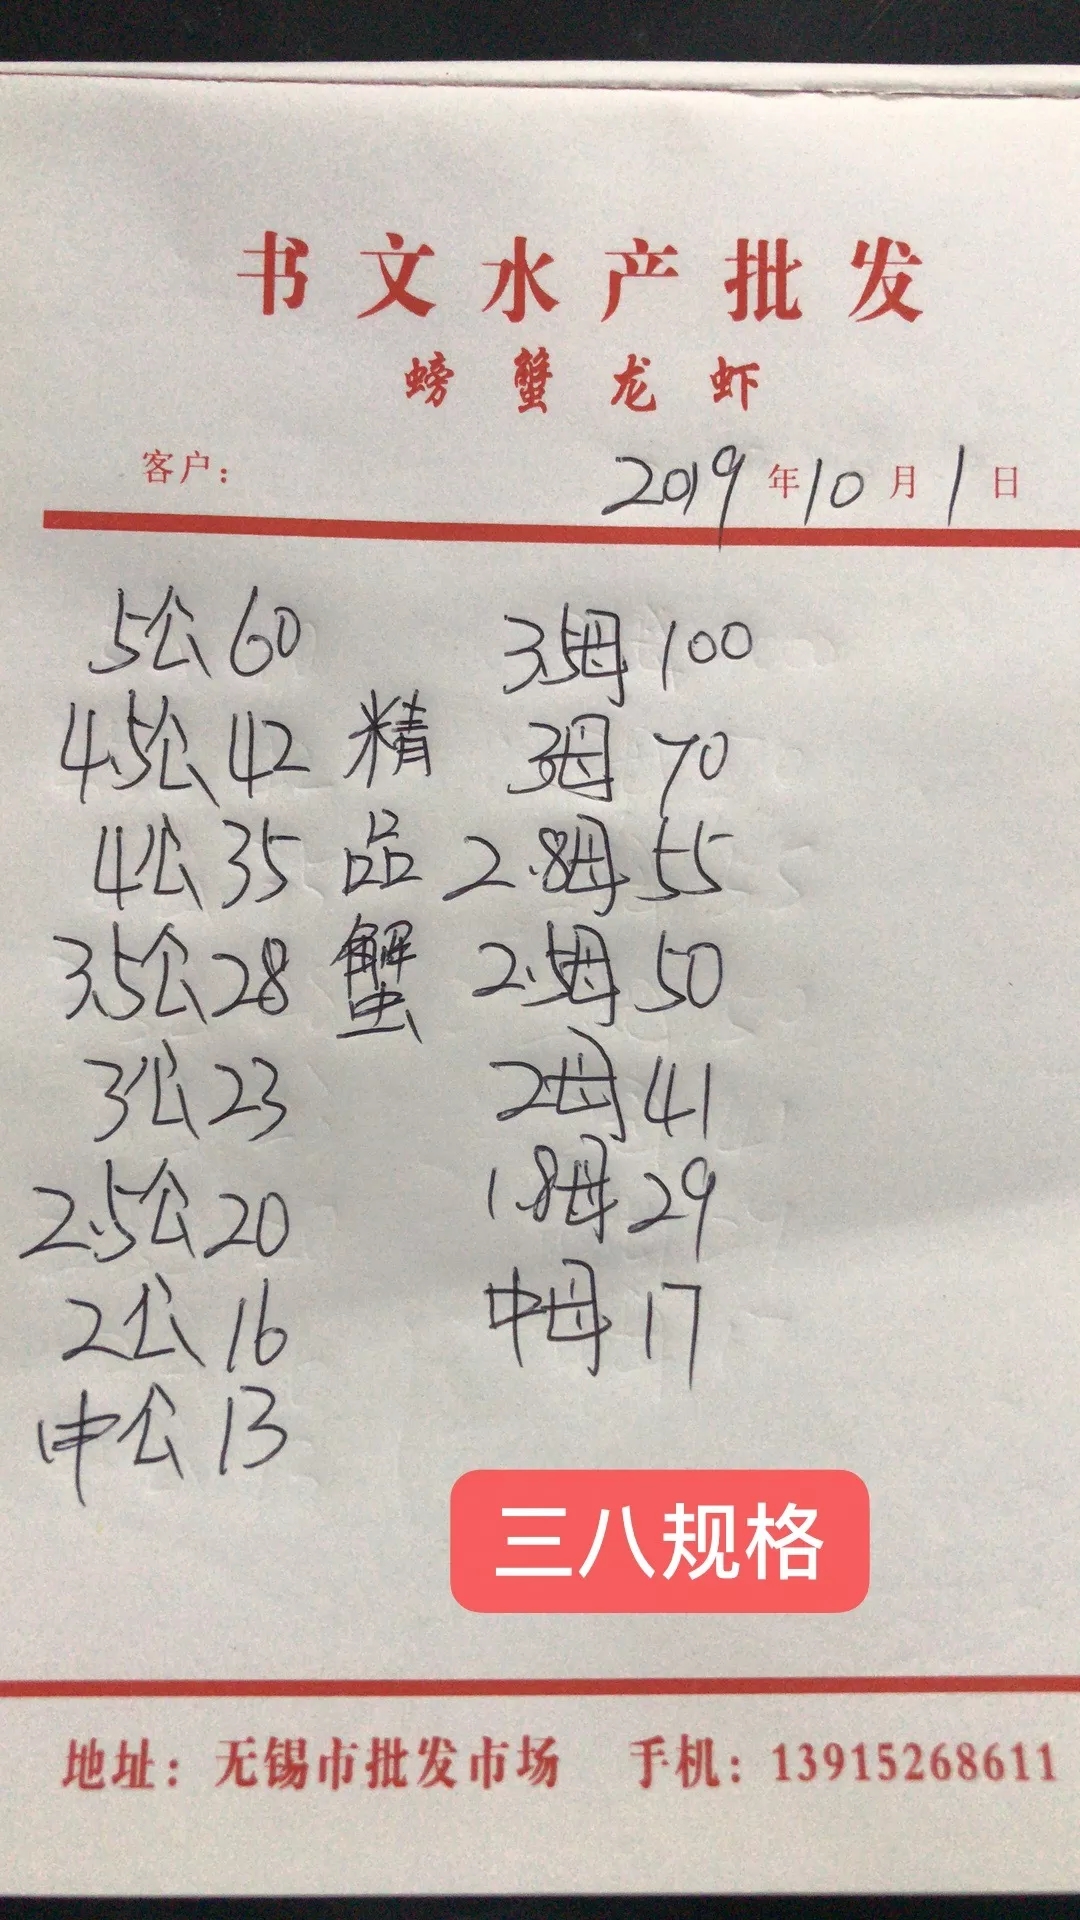 书文水产批发
螃蟹龙虾
客户: 2019年10月1日
5公60 3.5母100
4.5公42 精 3母70
4公35 品 2.8母55
3.5公28 蟹 2.5母50
3公23 2母41
2.5公20 1.8母29
2公16 中母17
中公13
三八规格
地址:无锡市批发市场 手机:13915268611